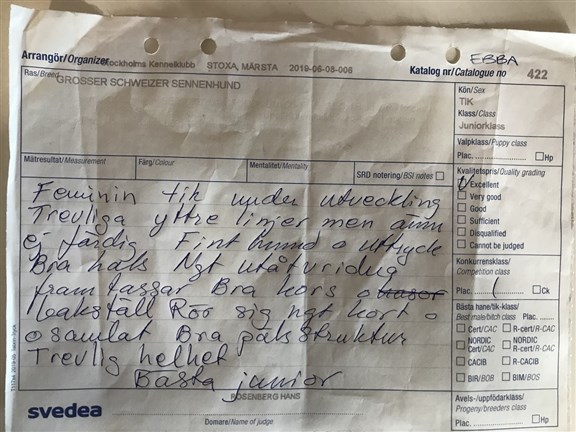 EBBA
Arrangör/Organizer Stockholms Kennelklubb STOXA, MÄRSTA 2019-06-06-006
Katalog nr/Catalogue no 422
Ras/Breed GROSSER SCHWEIZER SENNENHUND
Kön/Sex
TIK
Klass/Class
Juniorklass
Valpklass/Puppy class
Plac. Hp
Mätresultat/Measurement Färg/Colour Mentalitet/Mentality SRD notering/BSI notes
Kvalitetspris/Quality grading
Excellent
Very good
Good
Sufficient
Disqualified
Cannot be judged
Konkurrensklass/
Competition class
Plac. 1 Ck
Bästa hane/tik-klass/
Best male/bitch class Plac.
Cert/CAC R-cert/R-CAC
NORDIC Cert/CAC NORDIC R-cert/R-CAC
CACIB R-CACIB
BIR/BOB BIM/BOS
Avels-/uppfödarklass/
Progeny/breeders class
Plac. Hp
Feminin tik under utveckling
Trevliga yttre linjer men ännu
ej färdig Fint huvud o uttryck
Bra hals Ngt utåtvridna
framtassar Bra kors o
bakställ Rör sig ngt kort o
osamlat Bra pälsstruktur
Trevlig helhet
Bästa junior
ROSENBERG HANS
Domare/Name of judge
svedea